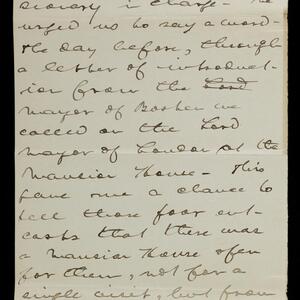 in charge - He
urged us to say a word -
the day before, through
a letter of introduct-
ion from the Lord
mayor of Boston we
called on the Lord
mayor of London at the
mansion House - This
gave me a chance to
tell those poor out-
casts that there was
a mansion House open
for them, not for a
single visit, but from